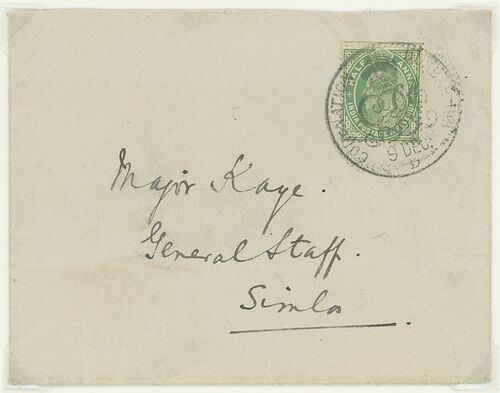 HALF ANNA
INDIA POSTAGE & REVENUE
9 DEC
Major Kaye.
General Staff.
Simla